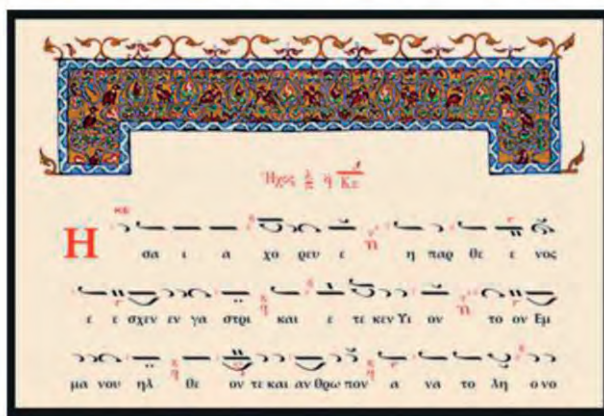 Ἦχος λ π ή Κε
Η σα ι α χο ρευ ε η παρ θε ε νος
ε ε σχεν εν γα στρι και ε τε κεν Υι ον το ον Εμ
μα νου ηλ θε ον τε και αν θρω πον α να το λη ο νο